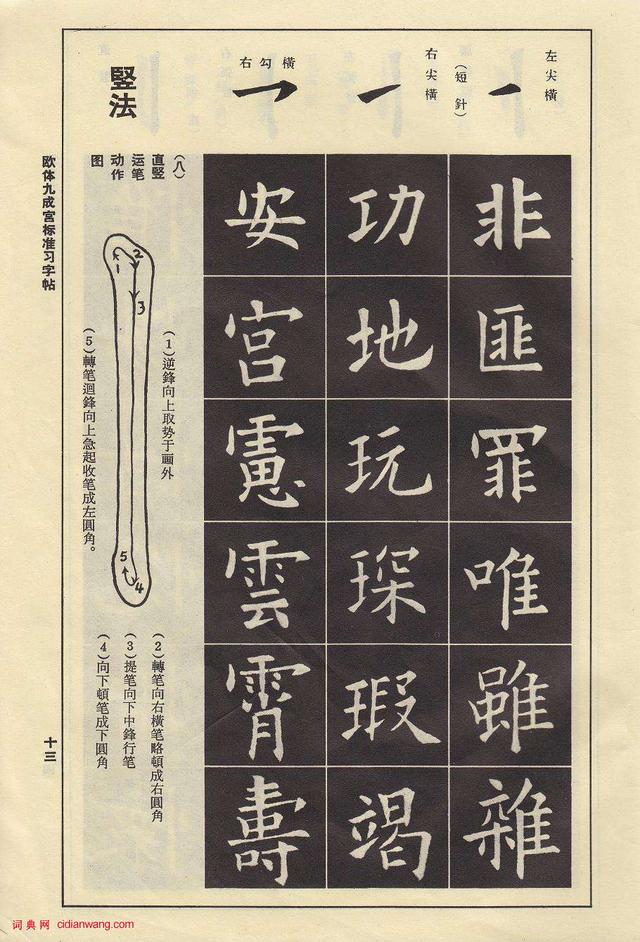 左尖橫
(短針)
右尖橫
右勾橫
非匪罪唯雖雜
功地玩琛瑕竭
安宮慮雲霄壽
竪法
(八)
直竪
运笔
动作
图
1
2
3
4
5
(1)逆鋒向上取势于画外
(2)轉笔向右橫笔略頓成右圓角
(3)提笔向下中鋒行笔
(4)向下頓笔成下圓角
(5)轉笔迴鋒向上急起收笔成左圓角。
欧体九成宫标准习字帖
十三
词典网 cidianwang.com